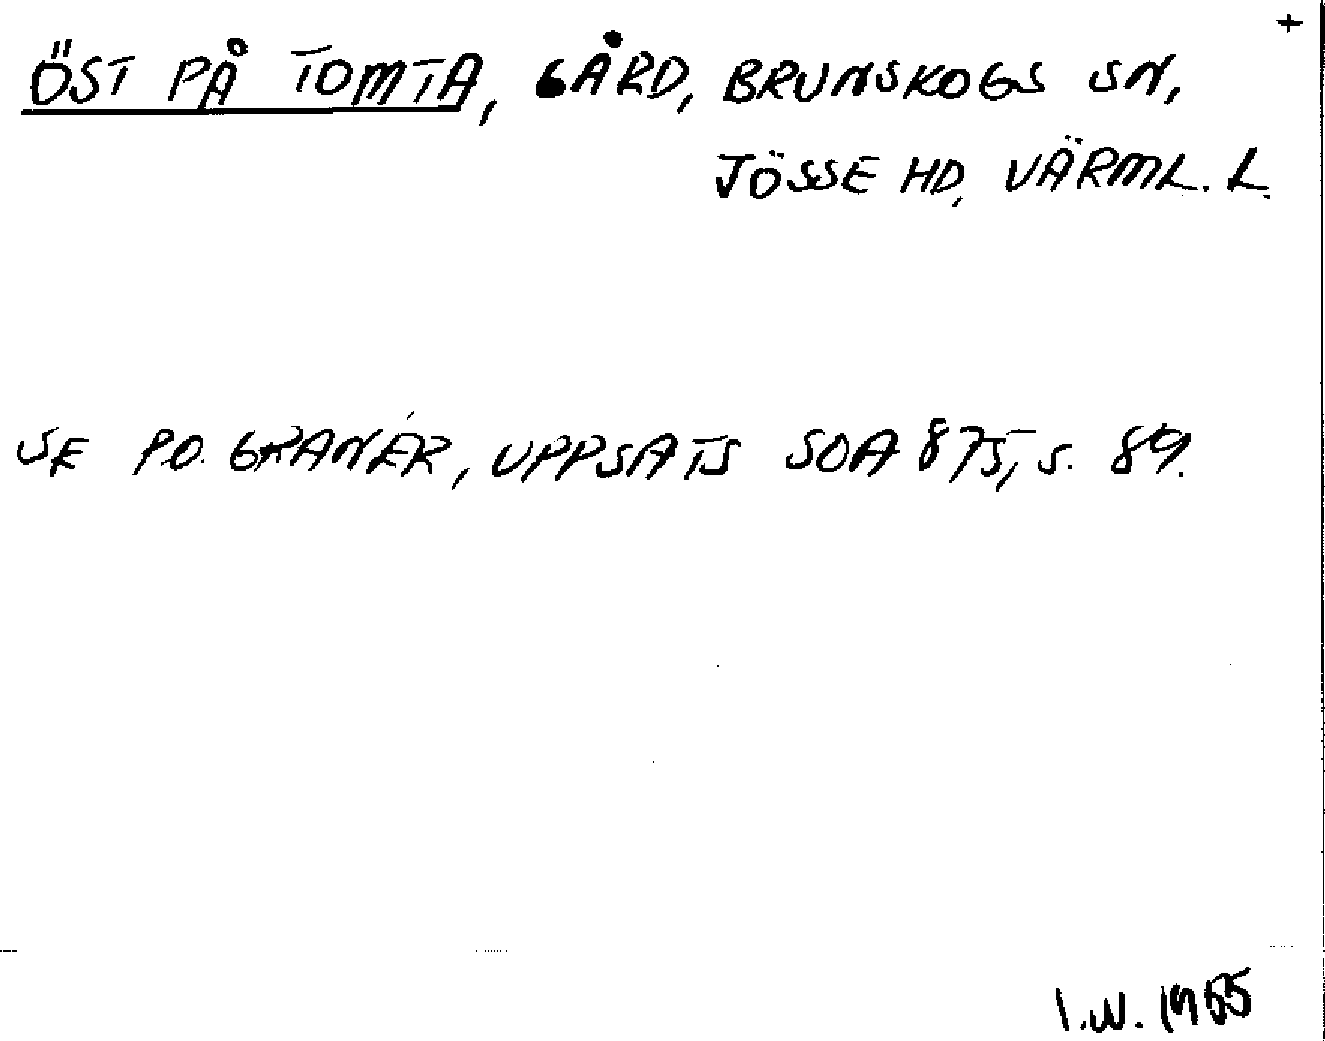 +
ÖST PÅ TOMTA, GÅRD, BRUNSKOGS SN,
JÖSSE HD, VÄRML. L.
SE P.O. GRANÉR, UPPSATS SOA 875, S. 89.
I.W. 1955